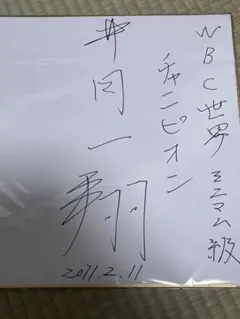 WBC世界ミニマム級
チャンピオン
井岡一翔
2011.2.11